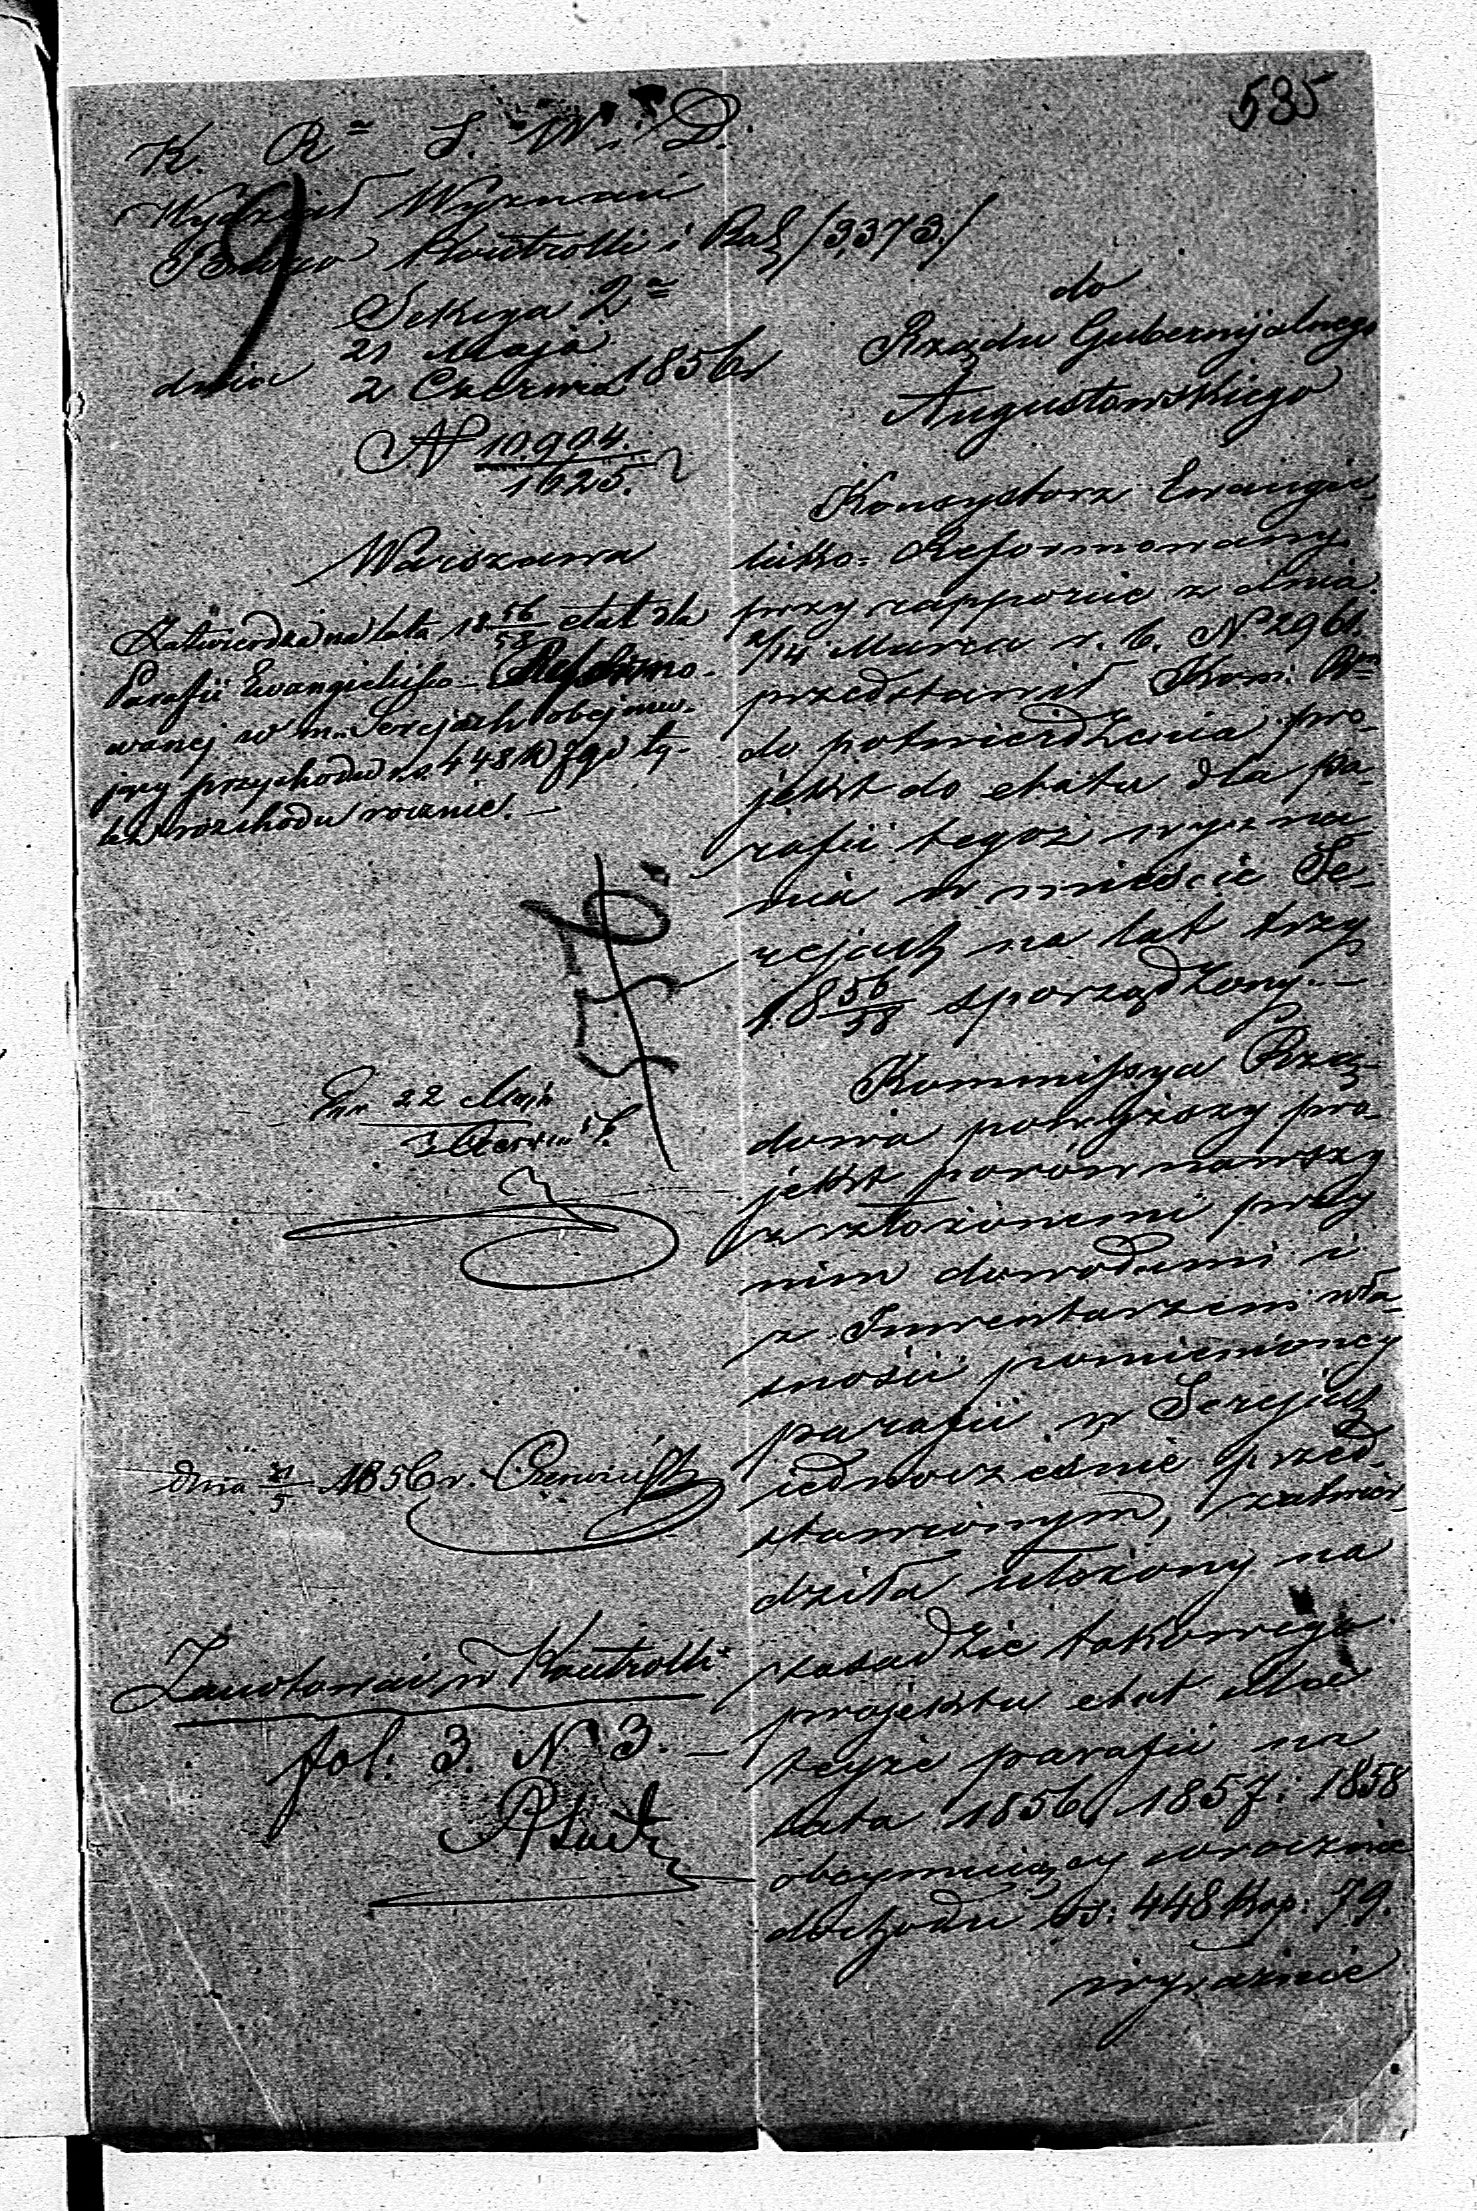 535
K. R. S. W. D.
Wydział Wyznań
Biuro Kontrolli i Rach /3373./
Sekcya 2ª
dnia 21 Maja
2 Czerwca 1856 r
N 10.904.
1625.
Warszawa
Zatwierdza na lata 18 56/58 etat dla
Parafii Ewangielicko-Reformo-
wanej w m. Serejach obejmu-
jący przychodu rs. 448 k 79 i ty-
leż rozchodu rocznie. —
Exp. 22 Maja
3 Czerwca
dnia 21/5 1856 r.
Zanotowano w Kontrolli
fol. 3. N. 3. —
do
Rządu Gubernijalnego
Augustowskiego
Konsystorz Ewangie-
licko-Reformowany
przy rapporcie z dnia
2/14 Marca r. b. N. 2961
przedstawił Kom. R
do potwierdzenia pro-
jekt do etatu dla pa-
rafii tegoż wyzna-
nia w mieście Se-
rejach na lat trzy
18 56/58 sporządzony. —
Kommissya Rzą-
dowa powyższy pro-
jekt porównawszy
z złożonemi przy
nim dowodami i
z Inwentarzem wła-
sności pomienionej
parafii w Serejach
jednocześnie przed-
stawionym, zatwier-
dziła ułożony na
zasadzie takowego
projektu etat dla
tejże parafii na
lata 1856, 1857 i 1858
obejmujący wrocznie
dochodu rs: 448 kop: 79.
wyraźnie